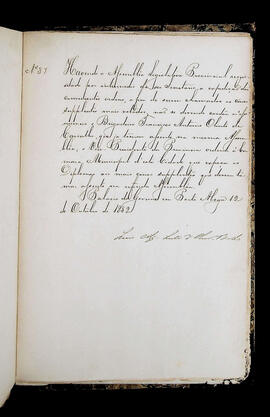 Nº 37
Havendo a Assembléa Legislativa Provincial requi
sitado por intermedio de seu Secretario, a expedição das
convenientes ordens, a fim de serem chamados os cinco
supplentes mais votados, não se devendo contar
o Brigadeiro Francisco Antonio Olinto de
Carvalho, que já tomou assento na mesma Assem
bléa, o Vice Presidente da Provincia ordena á Ca
mara Municipal desta Cidade que expeça os
Diplomas aos mais cinco supplentes que devem to
mar assento na referida Assembléa.
Palacio do Governo em Porto Alegre 12
de Outubro de 1852
Luis